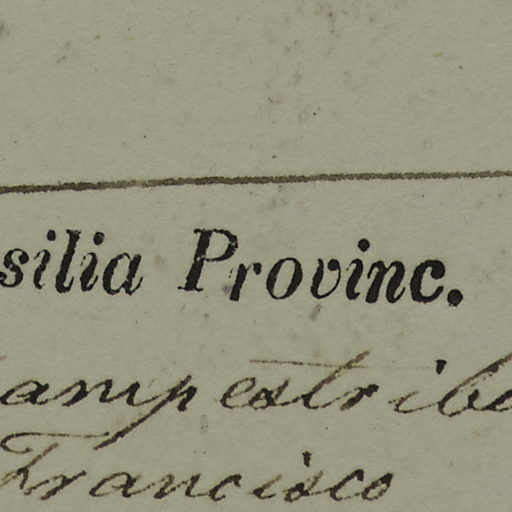 silia Provinc.
ampestribu
Francisco